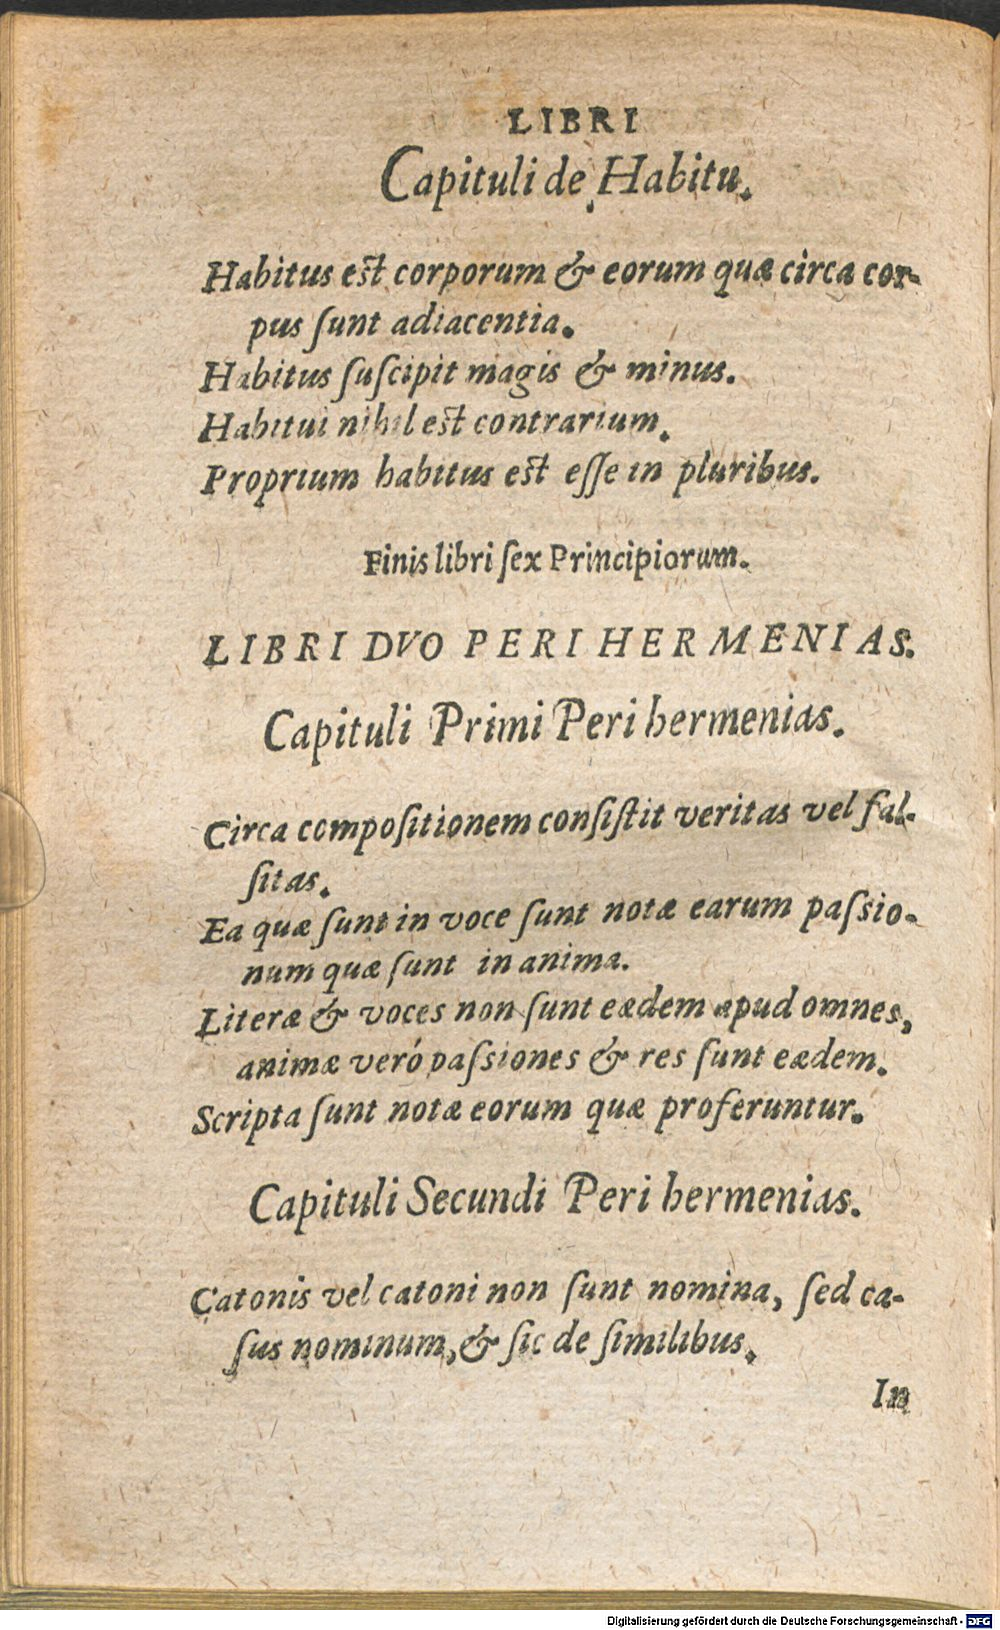 LIBRI
Capituli de Habitu.
Habitus est corporum & eorum quæ circa cor-
pus ſunt adiacentia.
Habitus ſuſcipit magis & minus.
Habitui nihil est contrarium.
Proprium habitus est eſſe in pluribus.
Finis libri ſex Principiorum.
LIBRI DVO PERI HERMENIAS.
Capituli Primi Peri hermenias.
Circa compoſitionem conſiſtit veritas vel fal-
ſitas.
Ea quæ ſunt in voce ſunt notæ earum paſsio-
num quæ ſunt in anima.
Literæ & voces non ſunt eædem apud omnes,
animæ veró paſsiones & res ſunt eædem.
Scripta ſunt notæ eorum quæ proferuntur.
Capituli Secundi Peri hermenias.
Catonis vel catoni non ſunt nomina, ſed ca-
ſus nominum, & ſic de ſimilibus.
In
Digitalisierung gefördert durch die Deutsche Forschungsgemeinschaft - DFG